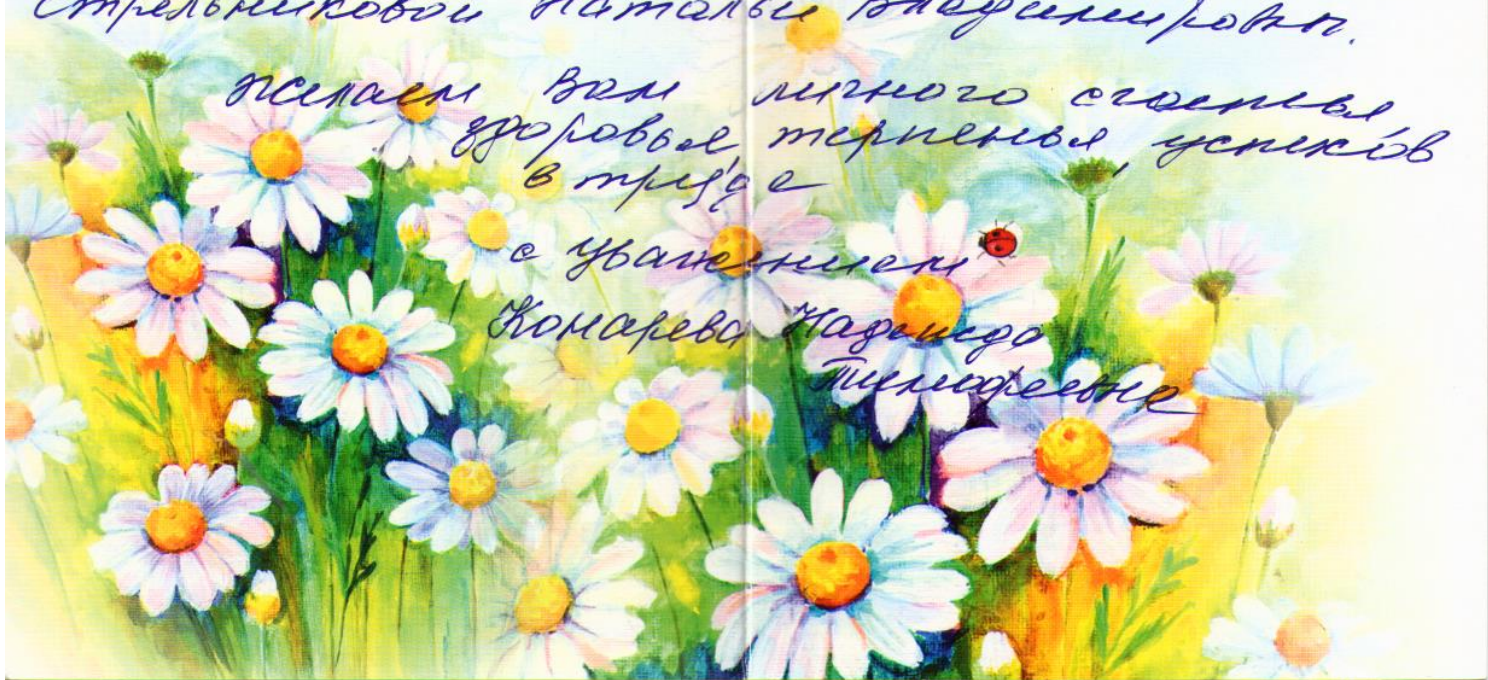 Стрельниковой Натальи Владимировны.
желаем Вам личного счастья
здоровья, терпенья, успехов
в труде
с уважением
Комарева Надежда
Тимофеевна